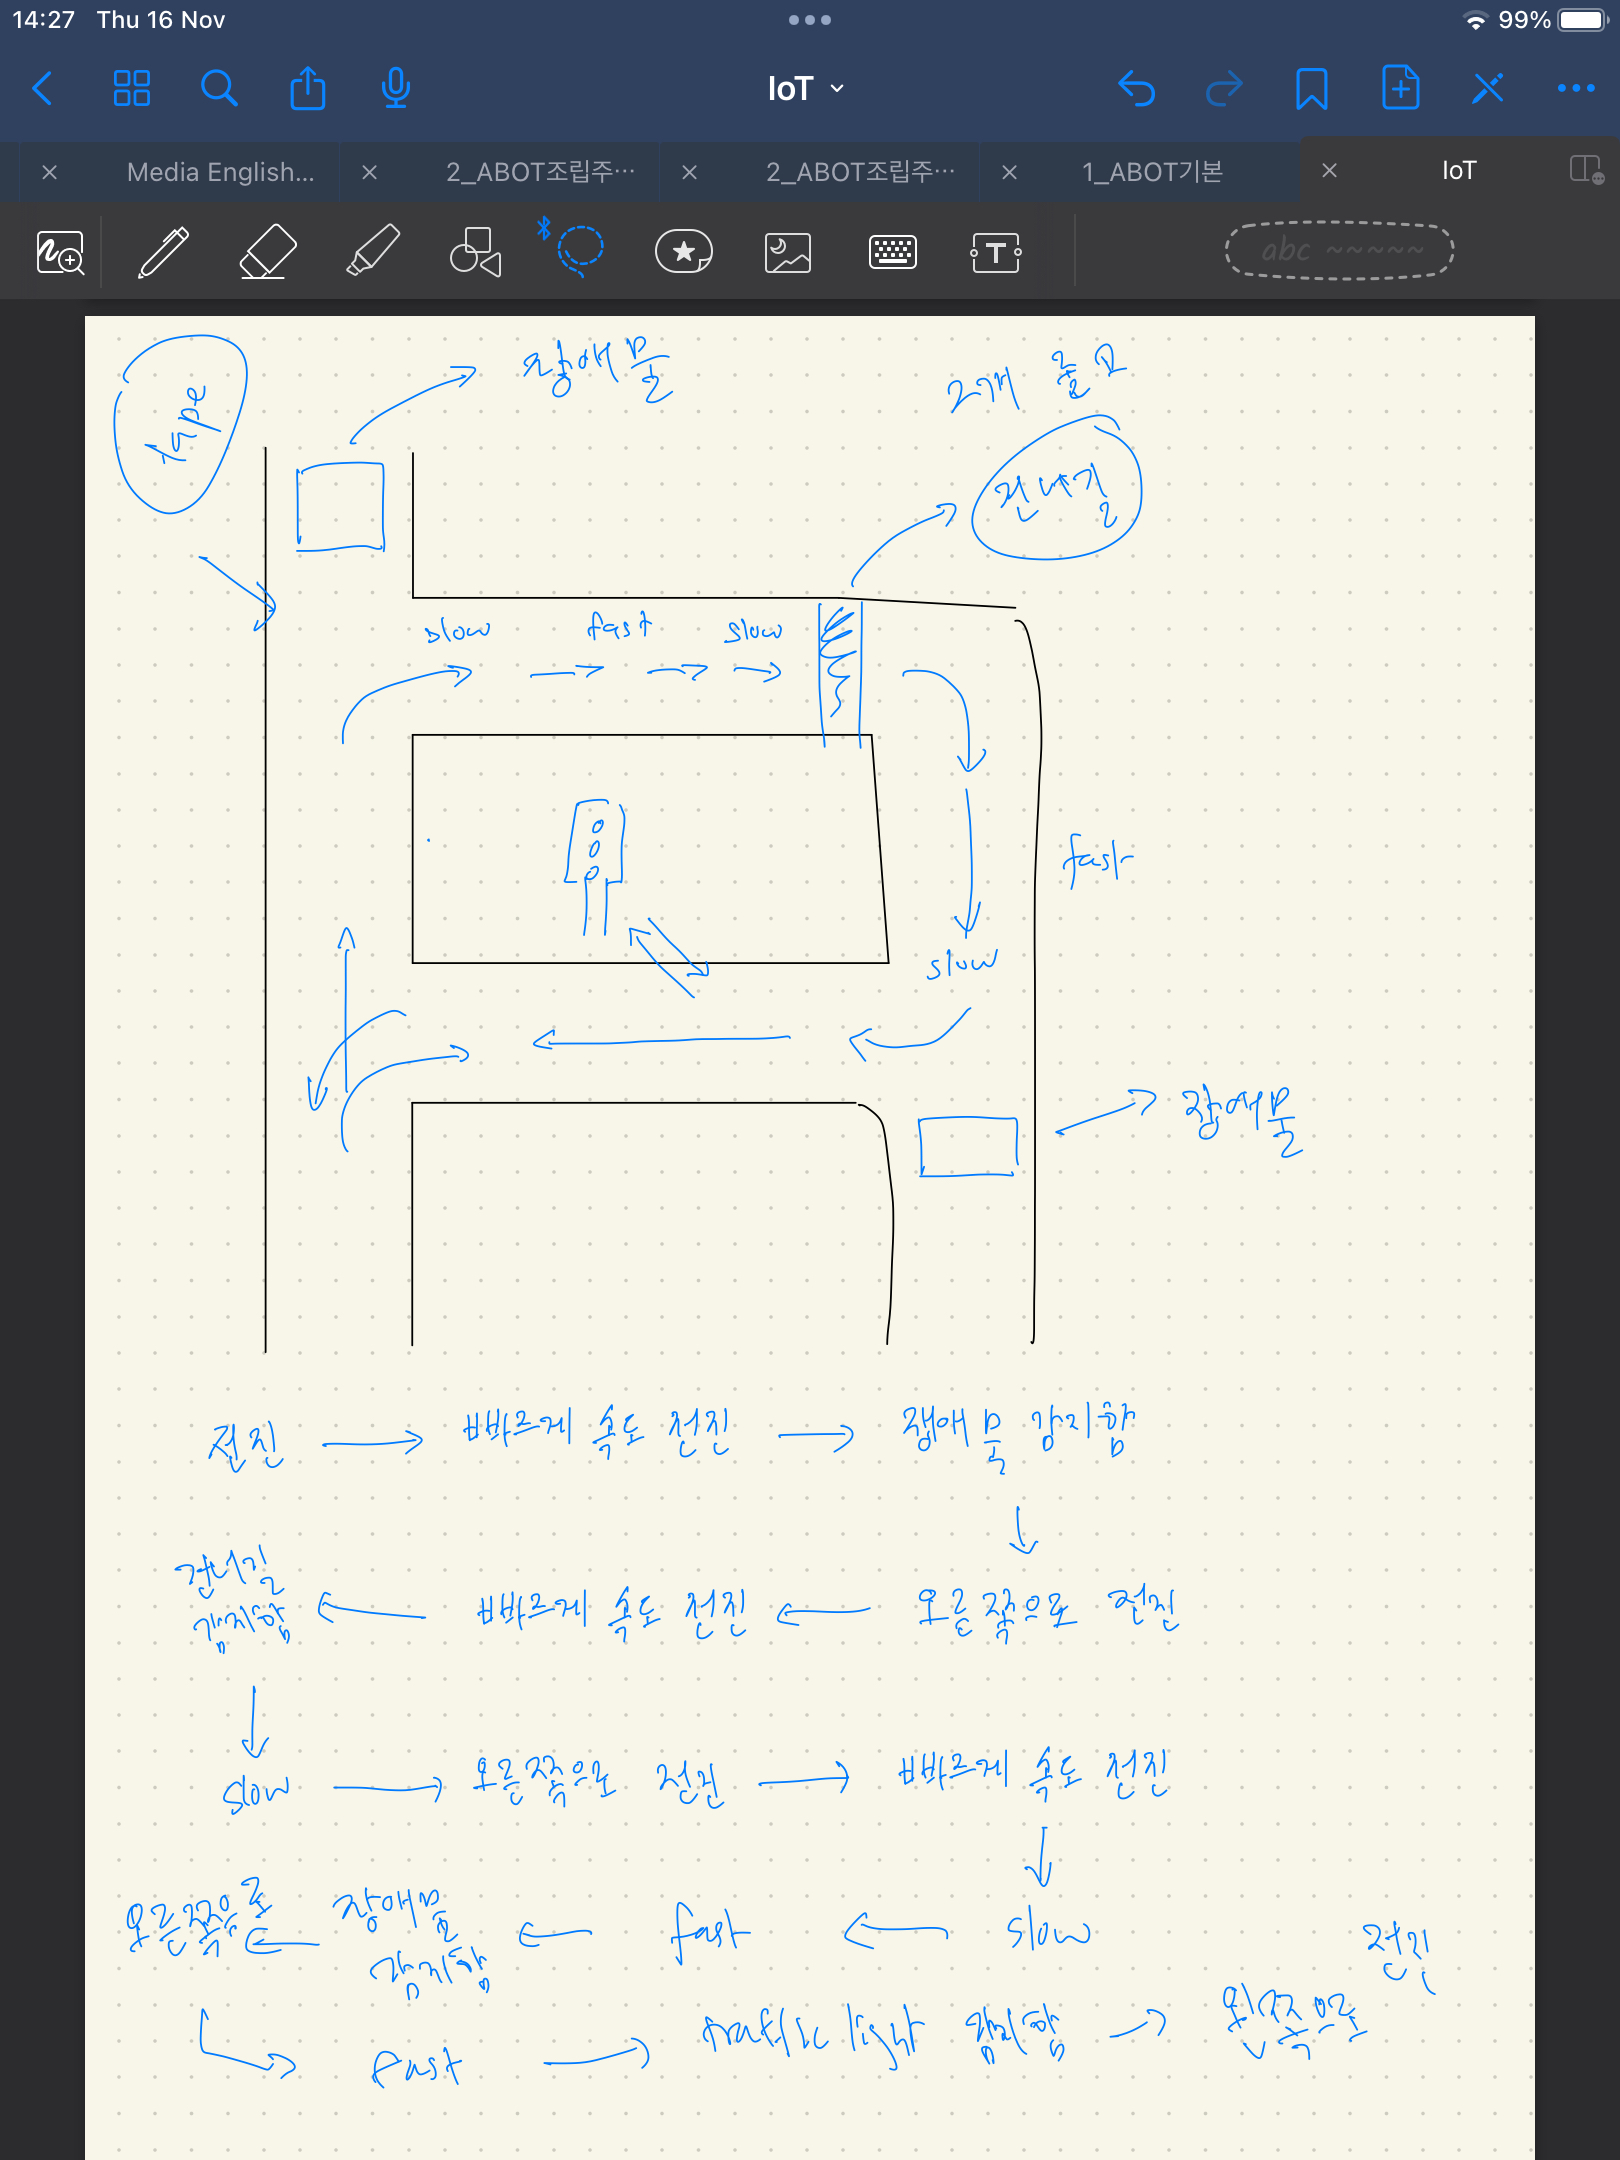 14:27 Thu 16 Nov
99%
IoT
Media English...
2_ABOT조립주...
2_ABOT조립주...
1_ABOT기본
IoT
abc ~~~~~
tape
장애물
2개 필요
건너길
slow fast slow
fast
slow
장애물
전진 → 빠르게 속도 전진 → 장애물 감지함
↓
건너길 감지함 ← 빠르게 속도 전진 ← 오른쪽으로 전진
↓
slow → 오른쪽으로 전진 → 빠르게 속도 전진
↓
오른쪽으로 ← 장애물 감지함 ← fast ← slow
fast → traffic light 감지함 → 왼쪽으로 전진